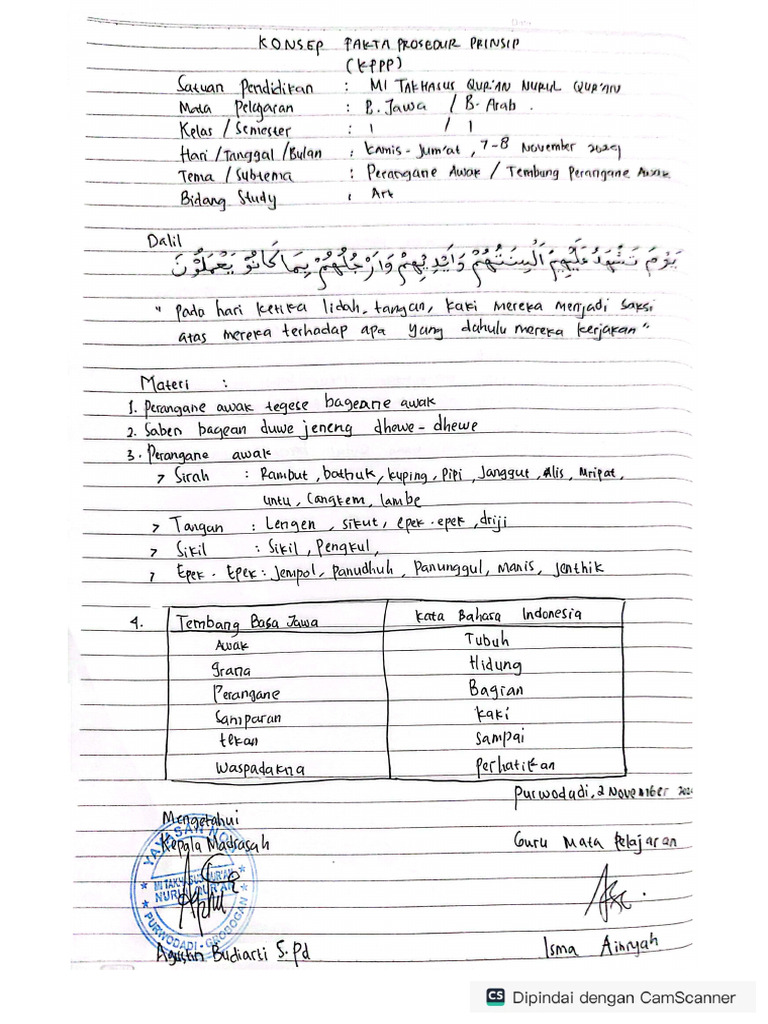 KONSEP FAKTA PROSEDUR PRINSIP
(KFPP)
Satuan Pendidikan : MI TAKHASUS QUR'AN NURUL QUR'AN
Mata Pelajaran : B. Jawa / B. Arab.
Kelas / Semester : 1 / 1
Hari / Tanggal / Bulan : Kamis - Jum'at, 7-8 November 2024
Tema / Subtema : Perangane Awak / Tembung Perangane Awak
Bidang Study : Art
Dalil
يَوْمَ تَشْهَدُ عَلَيْهِمْ اَلْسِنَتُهُمْ وَاَيْدِيْهِمْ وَاَرْجُلُهُمْ بِمَا كَانُوْ يَعْمَلُوْنَ
" Pada hari ketika lidah, tangan, kaki mereka menjadi saksi
atas mereka terhadap apa yang dahulu mereka kerjakan "
Materi :
1. Perangane awak tegese bageane awak
2. Saben bagean duwe jeneng dhewe - dhewe
3. Perangane awak
> Sirah : Rambut, bathuk, kuping, Pipi, Janggut, Alis, Mripat,
untu, Cangkem, lambe
> Tangan : Lengen, sikut, epek-epek, driji
> Sikil : Sikil, Pengkul,
> Epek - Epek : Jempol, panuduh, Panunggul, Manis, Jenthik
4. Tembang Basa Jawa Kata Bahasa Indonesia
Awak Tubuh
grana Hidung
Perangane Bagian
Samparan kaki
tekan sampai
waspadakna Perhatikan
Purwodadi, 2 November
Mengetahui
Kepala Madrasah Guru Mata Pelajaran
YAYASAN
MI TAKHASUS QUR'AN
NURUL QUR'AN
PURWODADI - GROBOGAN
Agustin Budiarti S.Pd Isma Ainiyah
CS Dipindai dengan CamScanner